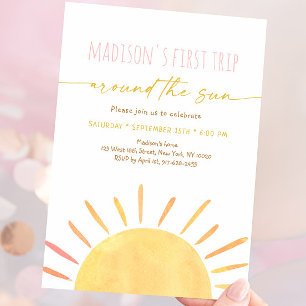 MADISON'S FIRST TRIP
around the sun
Please join us to celebrate
SATURDAY * SEPTEMBER 15TH * 6:00 PM
Madison's home
123 West 10th Street, New York, NY 10020
RSVP by April 1st, 917-628-2455